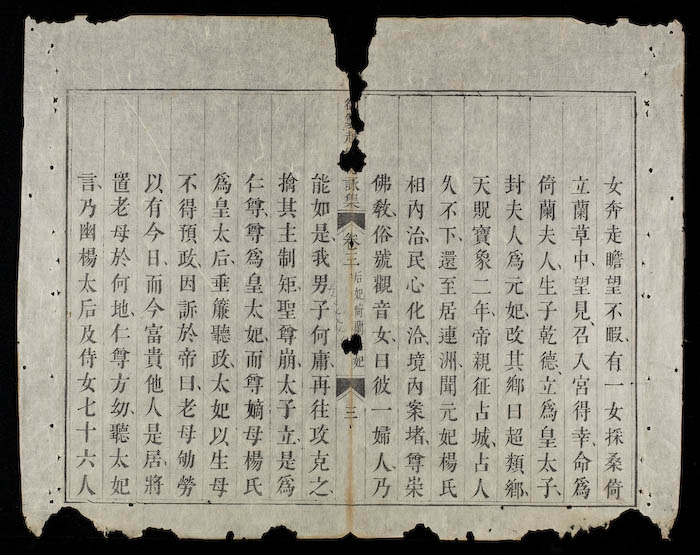 女奔走瞻望不暇、有一女採桑倚
立蘭草中、望見、召入宮得幸、命爲
倚蘭夫人、生子乾德、立爲皇太子、
封夫人爲元妃、改其鄉曰超類鄉、
天貺寶象二年、帝親征占城、占人
久不下、還至居連洲、聞元妃楊氏
相內治、民心化洽、境內案堵、尊崇
佛敎、俗號觀音女、曰彼一婦人、乃
詠集
卷三
后妃倚蘭妃
三
能如是、我男子何庸、再往攻克之、
擒其主制矩、聖尊崩、太子立、是爲
仁尊、尊爲皇太妃、而尊嫡母楊氏
爲皇太后、垂簾聽政、太妃以生母
不得預政、因訴於帝曰、老母劬勞
以有今日、而今富貴他人是居、將
置老母於何地、仁尊方幼、聽太妃
言、乃幽楊太后及侍女七十六人